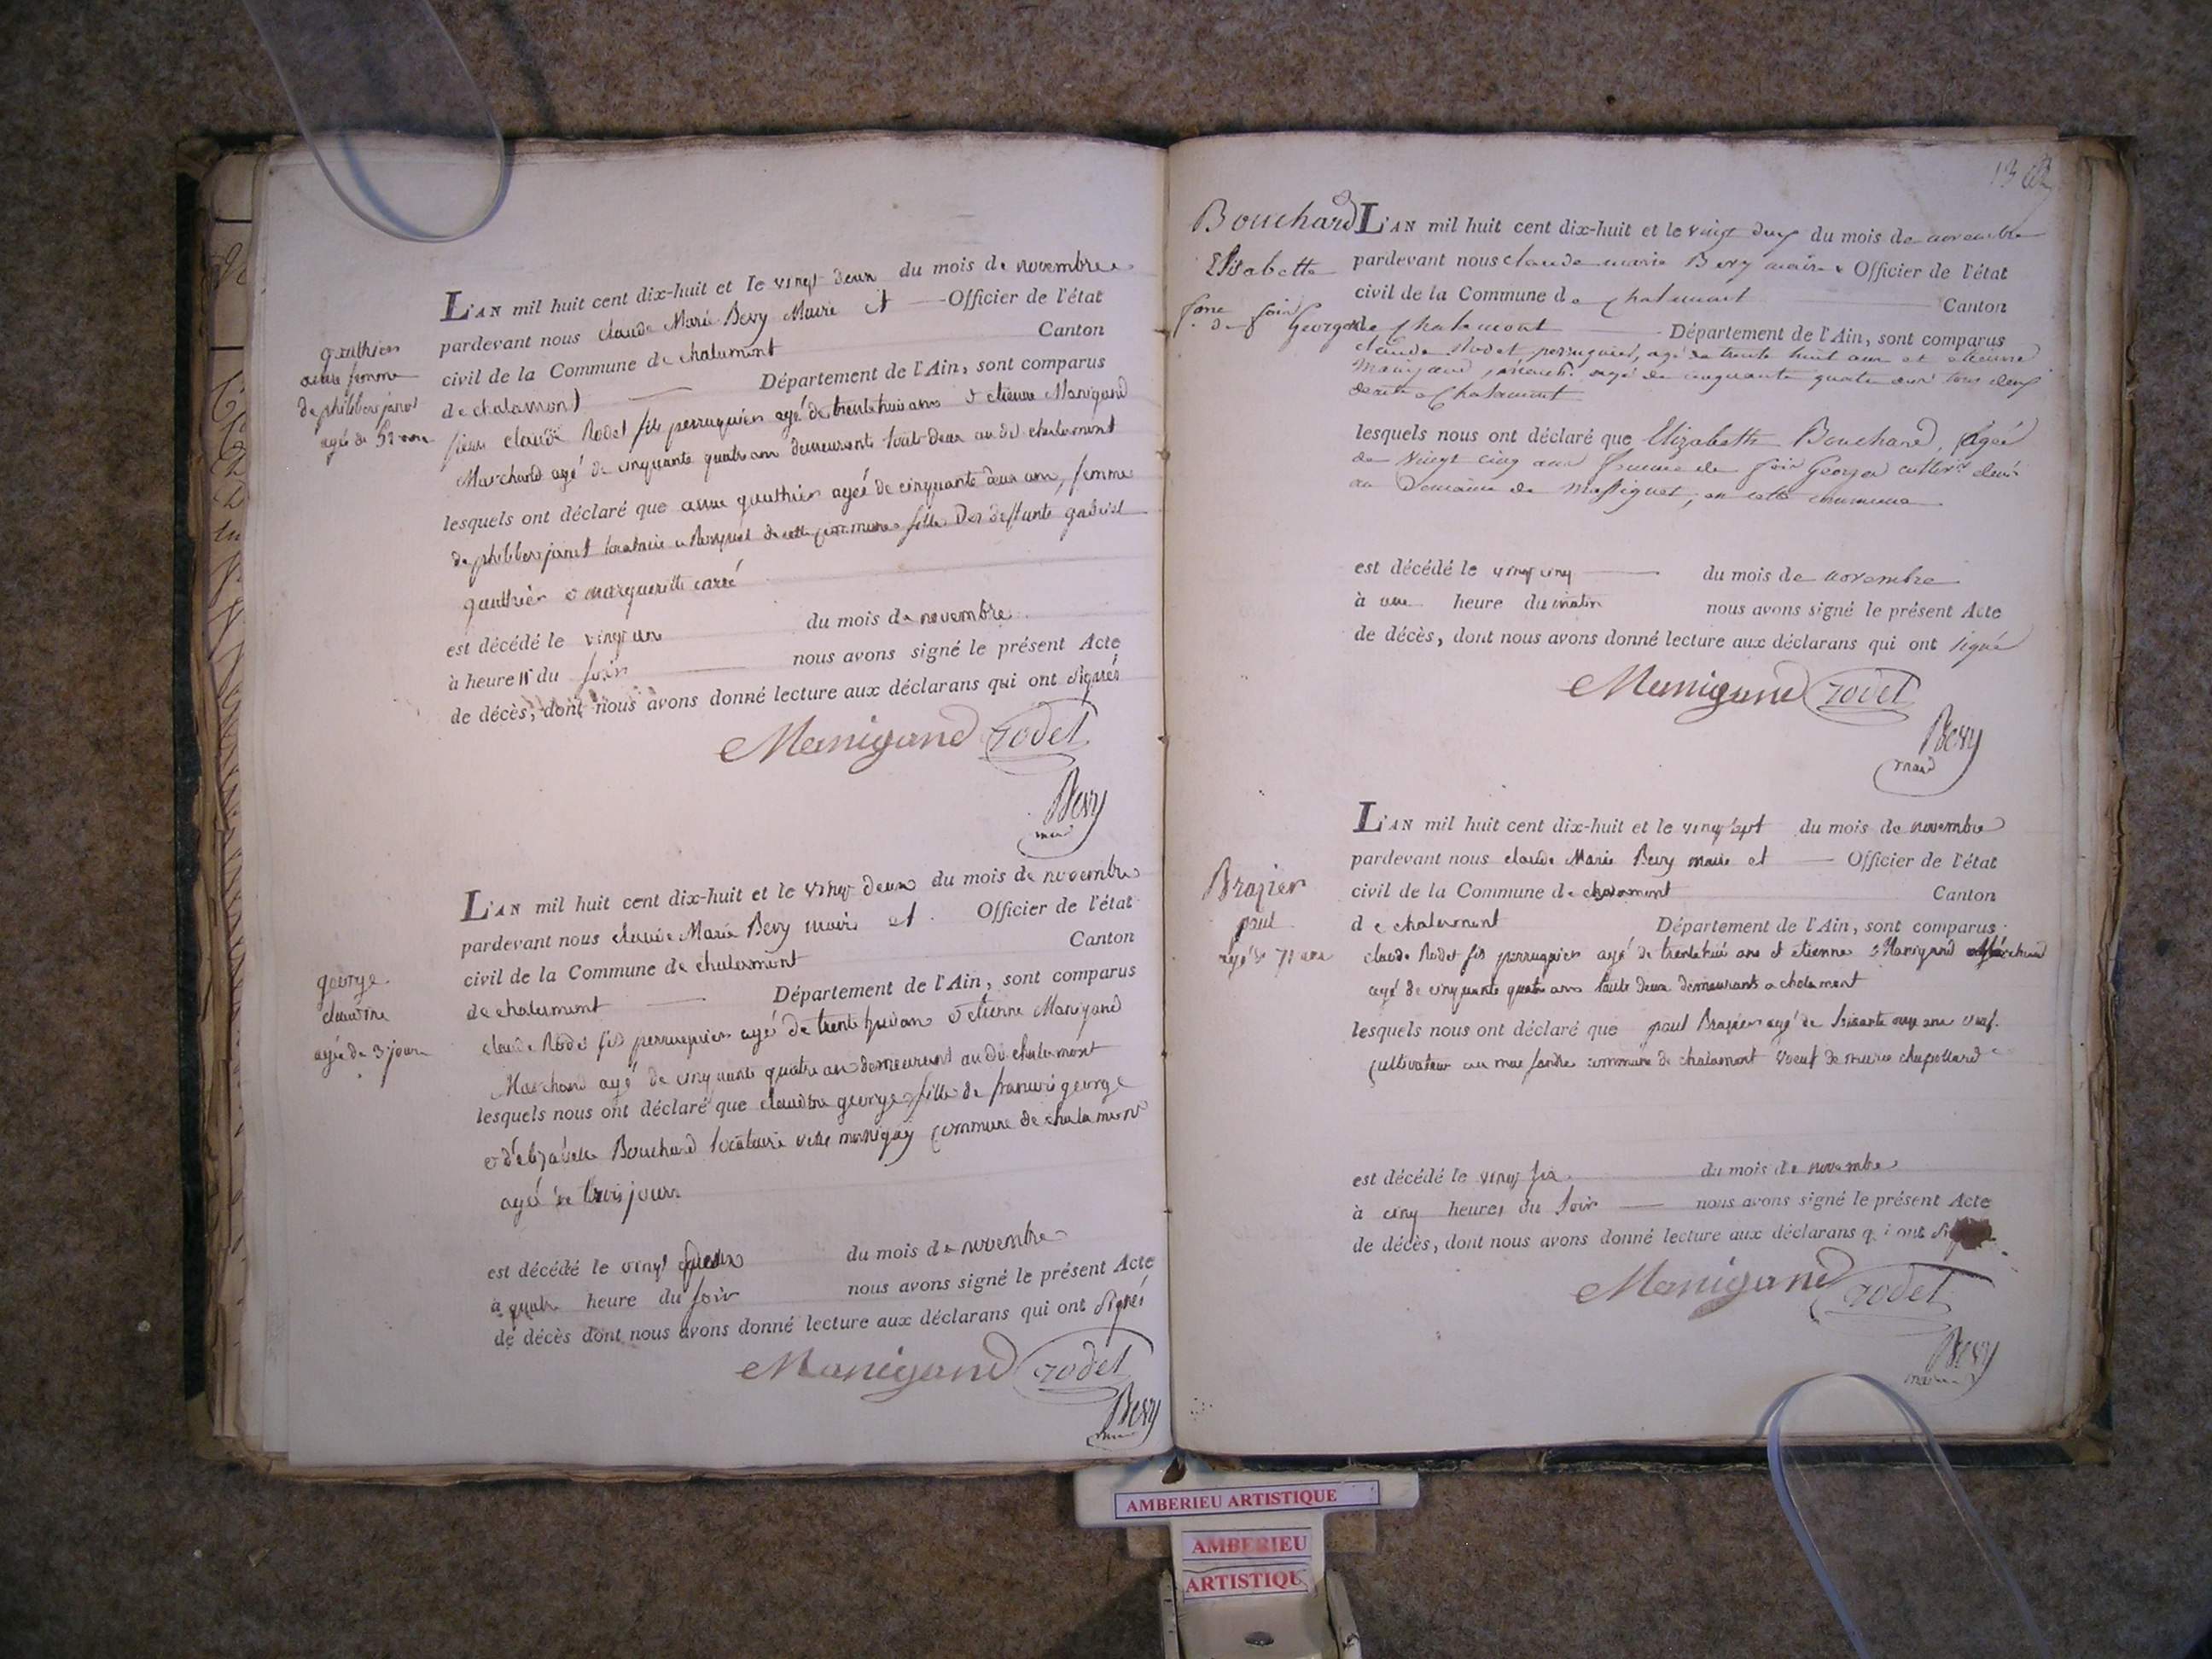 gauthier
anne femme
de philibert janet
agée de 52 ans
L'AN mil huit cent dix-huit et le vingt deux du mois de novembre
pardevant nous claude Marie Bevy Maire et Officier de l'état
civil de la Commune de chalamont Canton
de chalamont Département de l'Ain, sont comparus
sieur claude Rodet fils perruquier agé de trente huit ans & etienne Manigand
Marchand agé de cinquante quatre ans demeurants tout deux au dit chalamont
lesquels ont déclaré que anne gauthier agée de cinquante deux ans, femme
de philibert janet locataire a de cette commune fille des deffunts gabriel
gauthier & margueritte carré
est décédé le vingt un du mois de novembre
à heure 11 du soir nous avons signé le présent Acte
de décès, dont nous avons donné lecture aux déclarans qui ont signés
Manigand rodet
Bevy
maire
george
claudine
agée de 3 jours
L'AN mil huit cent dix-huit et le vingt deux du mois de novembre
pardevant nous claude Marie Bevy maire et Officier de l'état
civil de la Commune de chalamont Canton
de chalamont Département de l'Ain, sont comparus
claude Rodet fils perruquier agé de trente huit ans & etienne Manigand
Marchand agé de cinquante quatre ans demeurant au dit chalamont
lesquels nous ont déclaré que claudine george fille de francois george
& d'elizabeth Bouchard locataire commune de chalamont
agé de trois jours
est décédé le vingt deux du mois de novembre
à quatre heure du soir nous avons signé le présent Acte
de décès dont nous avons donné lecture aux déclarans qui ont signés
Manigand rodet
Bevy
maire
13
Bouchard
Elisabette
fme de foix George
L'AN mil huit cent dix-huit et le vingt du mois de novembre
pardevant nous claude marie Bevy maire & Officier de l'état
civil de la Commune de chalamont Canton
de chalamont Département de l'Ain, sont comparus
claude Rodet perruquier, agé de trente huit ans et etienne
Manigand march. agé de cinquante quatre ans tous deux
demt a Chalamont
lesquels nous ont déclaré que Elizabeth Bouchard, agée
de vingt cinq ans femme de foix George cultivr demt
au Domaine de Massiguet, en cette commune
est décédé le vingt cinq du mois de novembre
à une heure du matin nous avons signé le présent Acte
de décès, dont nous avons donné lecture aux déclarans qui ont signé
Manigand rodet
Bevy
maire
Brazier
paul
agé de 71 ans
L'AN mil huit cent dix-huit et le vingt sept du mois de novembre
pardevant nous claude Marie Bevy maire et Officier de l'état
civil de la Commune de chalamont Canton
de chalamont Département de l'Ain, sont comparus
claude Rodet fils perruquier agé de trente huit ans et etienne Manigand Marchand
agé de cinquante quatre ans toute deux demeurants a chalamont
lesquels nous ont déclaré que paul Brazier agé de soixante onze ans
cultivateur au commune de chalamont veuf de marie chapolard
est décédé le vingt six du mois de novembre
à cinq heures du soir nous avons signé le présent Acte
de décès, dont nous avons donné lecture aux déclarans qui ont
Manigand rodet
Bevy
maire
AMBERIEU ARTISTIQUE
AMBERIEU
ARTISTIQU